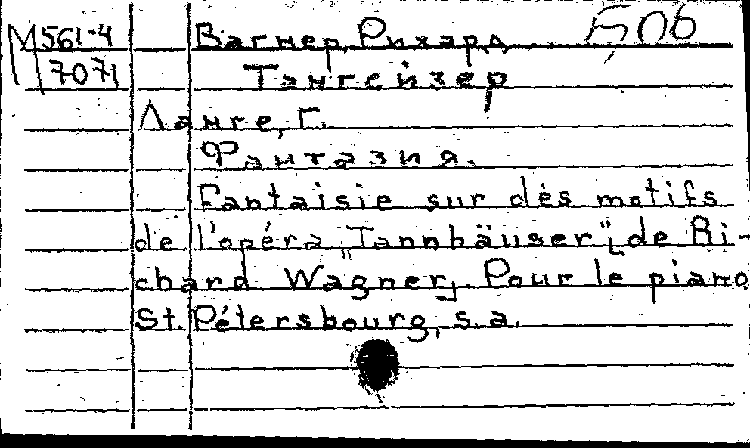 М 561-4 Вагнер, Рихард 506
7071 Тангейзер
Ланге, Г.
Фантазия.
Fantaisie sur dès motifs
de l'opéra „Tannhäuser" [de Ri-
chard Wagner]. Pour le piano
St. Pétersbourg, s.a.